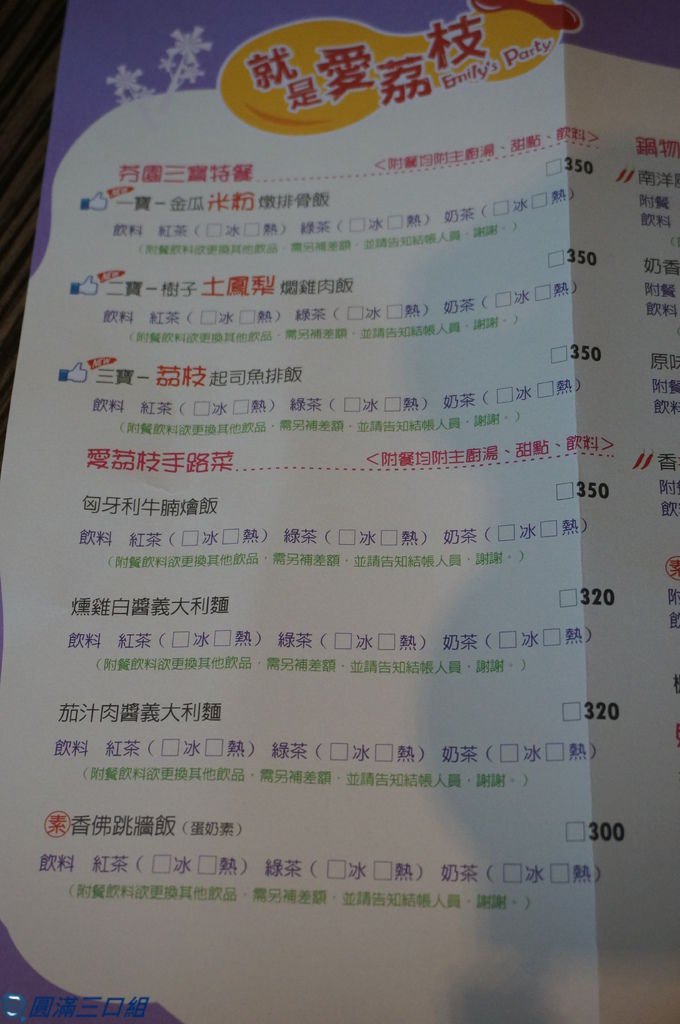 就是愛荔枝
Emily's Party
芬園三寶特餐 <附餐均附主廚湯、甜點、飲料>
NEW 一寶-金瓜米粉燉排骨飯 □350
飲料 紅茶(□冰□熱) 綠茶(□冰□熱) 奶茶(□冰□熱)
(附餐飲料欲更換其他飲品,需另補差額,並請告知結帳人員,謝謝。)
NEW 二寶-樹子土鳳梨燜雞肉飯 □350
飲料 紅茶(□冰□熱) 綠茶(□冰□熱) 奶茶(□冰□熱)
(附餐飲料欲更換其他飲品,需另補差額,並請告知結帳人員,謝謝。)
NEW 三寶-荔枝起司魚排飯 □350
飲料 紅茶(□冰□熱) 綠茶(□冰□熱) 奶茶(□冰□熱)
(附餐飲料欲更換其他飲品,需另補差額,並請告知結帳人員,謝謝。)
愛荔枝手路菜 <附餐均附主廚湯、甜點、飲料>
匈牙利牛腩燴飯 □350
飲料 紅茶(□冰□熱) 綠茶(□冰□熱) 奶茶(□冰□熱)
(附餐飲料欲更換其他飲品,需另補差額,並請告知結帳人員,謝謝。)
燻雞白醬義大利麵 □320
飲料 紅茶(□冰□熱) 綠茶(□冰□熱) 奶茶(□冰□熱)
(附餐飲料欲更換其他飲品,需另補差額,並請告知結帳人員,謝謝。)
茄汁肉醬義大利麵 □320
飲料 紅茶(□冰□熱) 綠茶(□冰□熱) 奶茶(□冰□熱)
(附餐飲料欲更換其他飲品,需另補差額,並請告知結帳人員,謝謝。)
素 香佛跳牆飯(蛋奶素) □300
飲料 紅茶(□冰□熱) 綠茶(□冰□熱) 奶茶(□冰□熱)
(附餐飲料欲更換其他飲品,需另補差額,並請告知結帳人員,謝謝。)
鍋物
南洋
附餐
飲料
奶香
附餐
飲料
原味
附餐
飲料
香
附
飲
素
附
飲
圓滿三口組